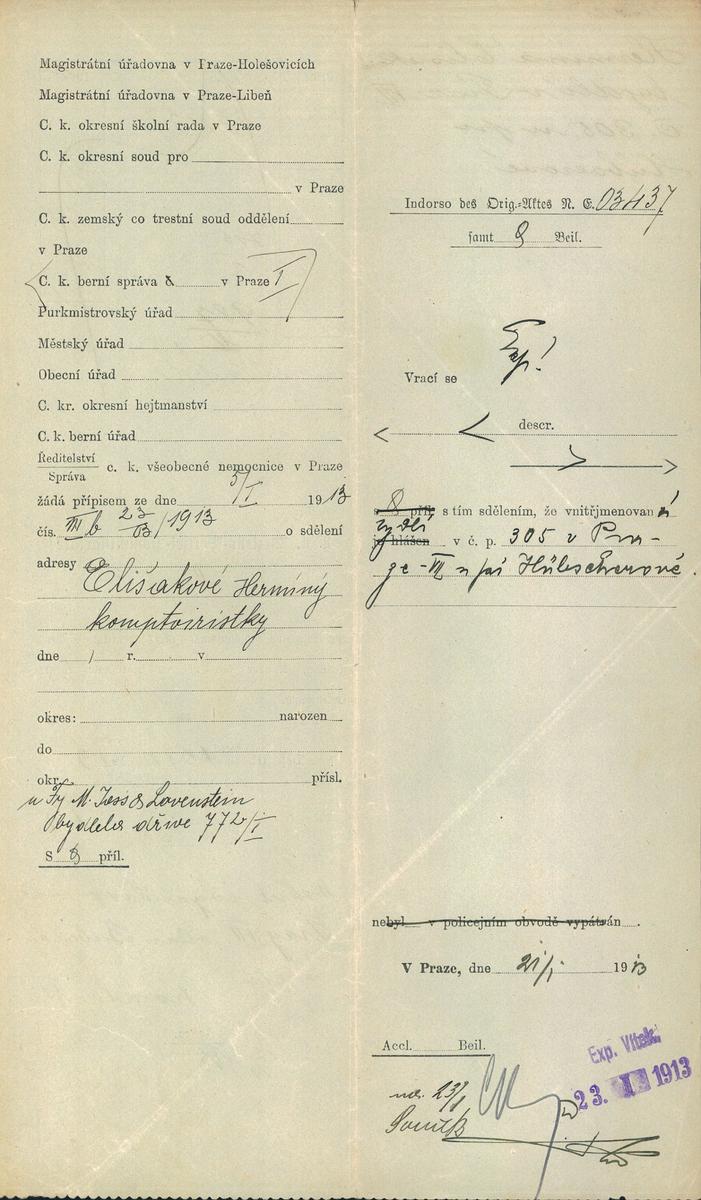 Magistrátní úřadovna v Praze-Holešovicích
Magistrátní úřadovna v Praze-Libeň
C. k. okresní školní rada v Praze
C. k. okresní soud pro
v Praze
C. k. zemský co trestní soud oddělení
v Praze
C. k. berní správa v Praze I
Purkmistrovský úřad
Městský úřad
Obecní úřad
C. kr. okresní hejtmanství
C. k. berní úřad
Ředitelství
Správa
c. k. všeobecné nemocnice v Praze
žádá přípisem ze dne 3/I 1913
čís. III b 23/03/1913 o sdělení
adresy Elišakové Herminy
komptoiristky
dne / r. v
okres: narozen
do
okr. přísl.
u Fy M. & Lovenstein
bydlela dříve 772/I
S 8 příl.
Indorso des Orig.-Aktes N. E. 03437
samt 8 Beil.
Vrací se
descr.
s 8 příl. s tím sdělením, že vnitřjmenovaná
bydlí
je hlášen v č. p. 305 v Pra-
ze-III u pí Hübscherové.
nebyl v policejním obvodě vypátrán .
V Praze, dne 21/I 1913
Accl. Beil.
Exp. Vítek.
23. I 1913
23/I